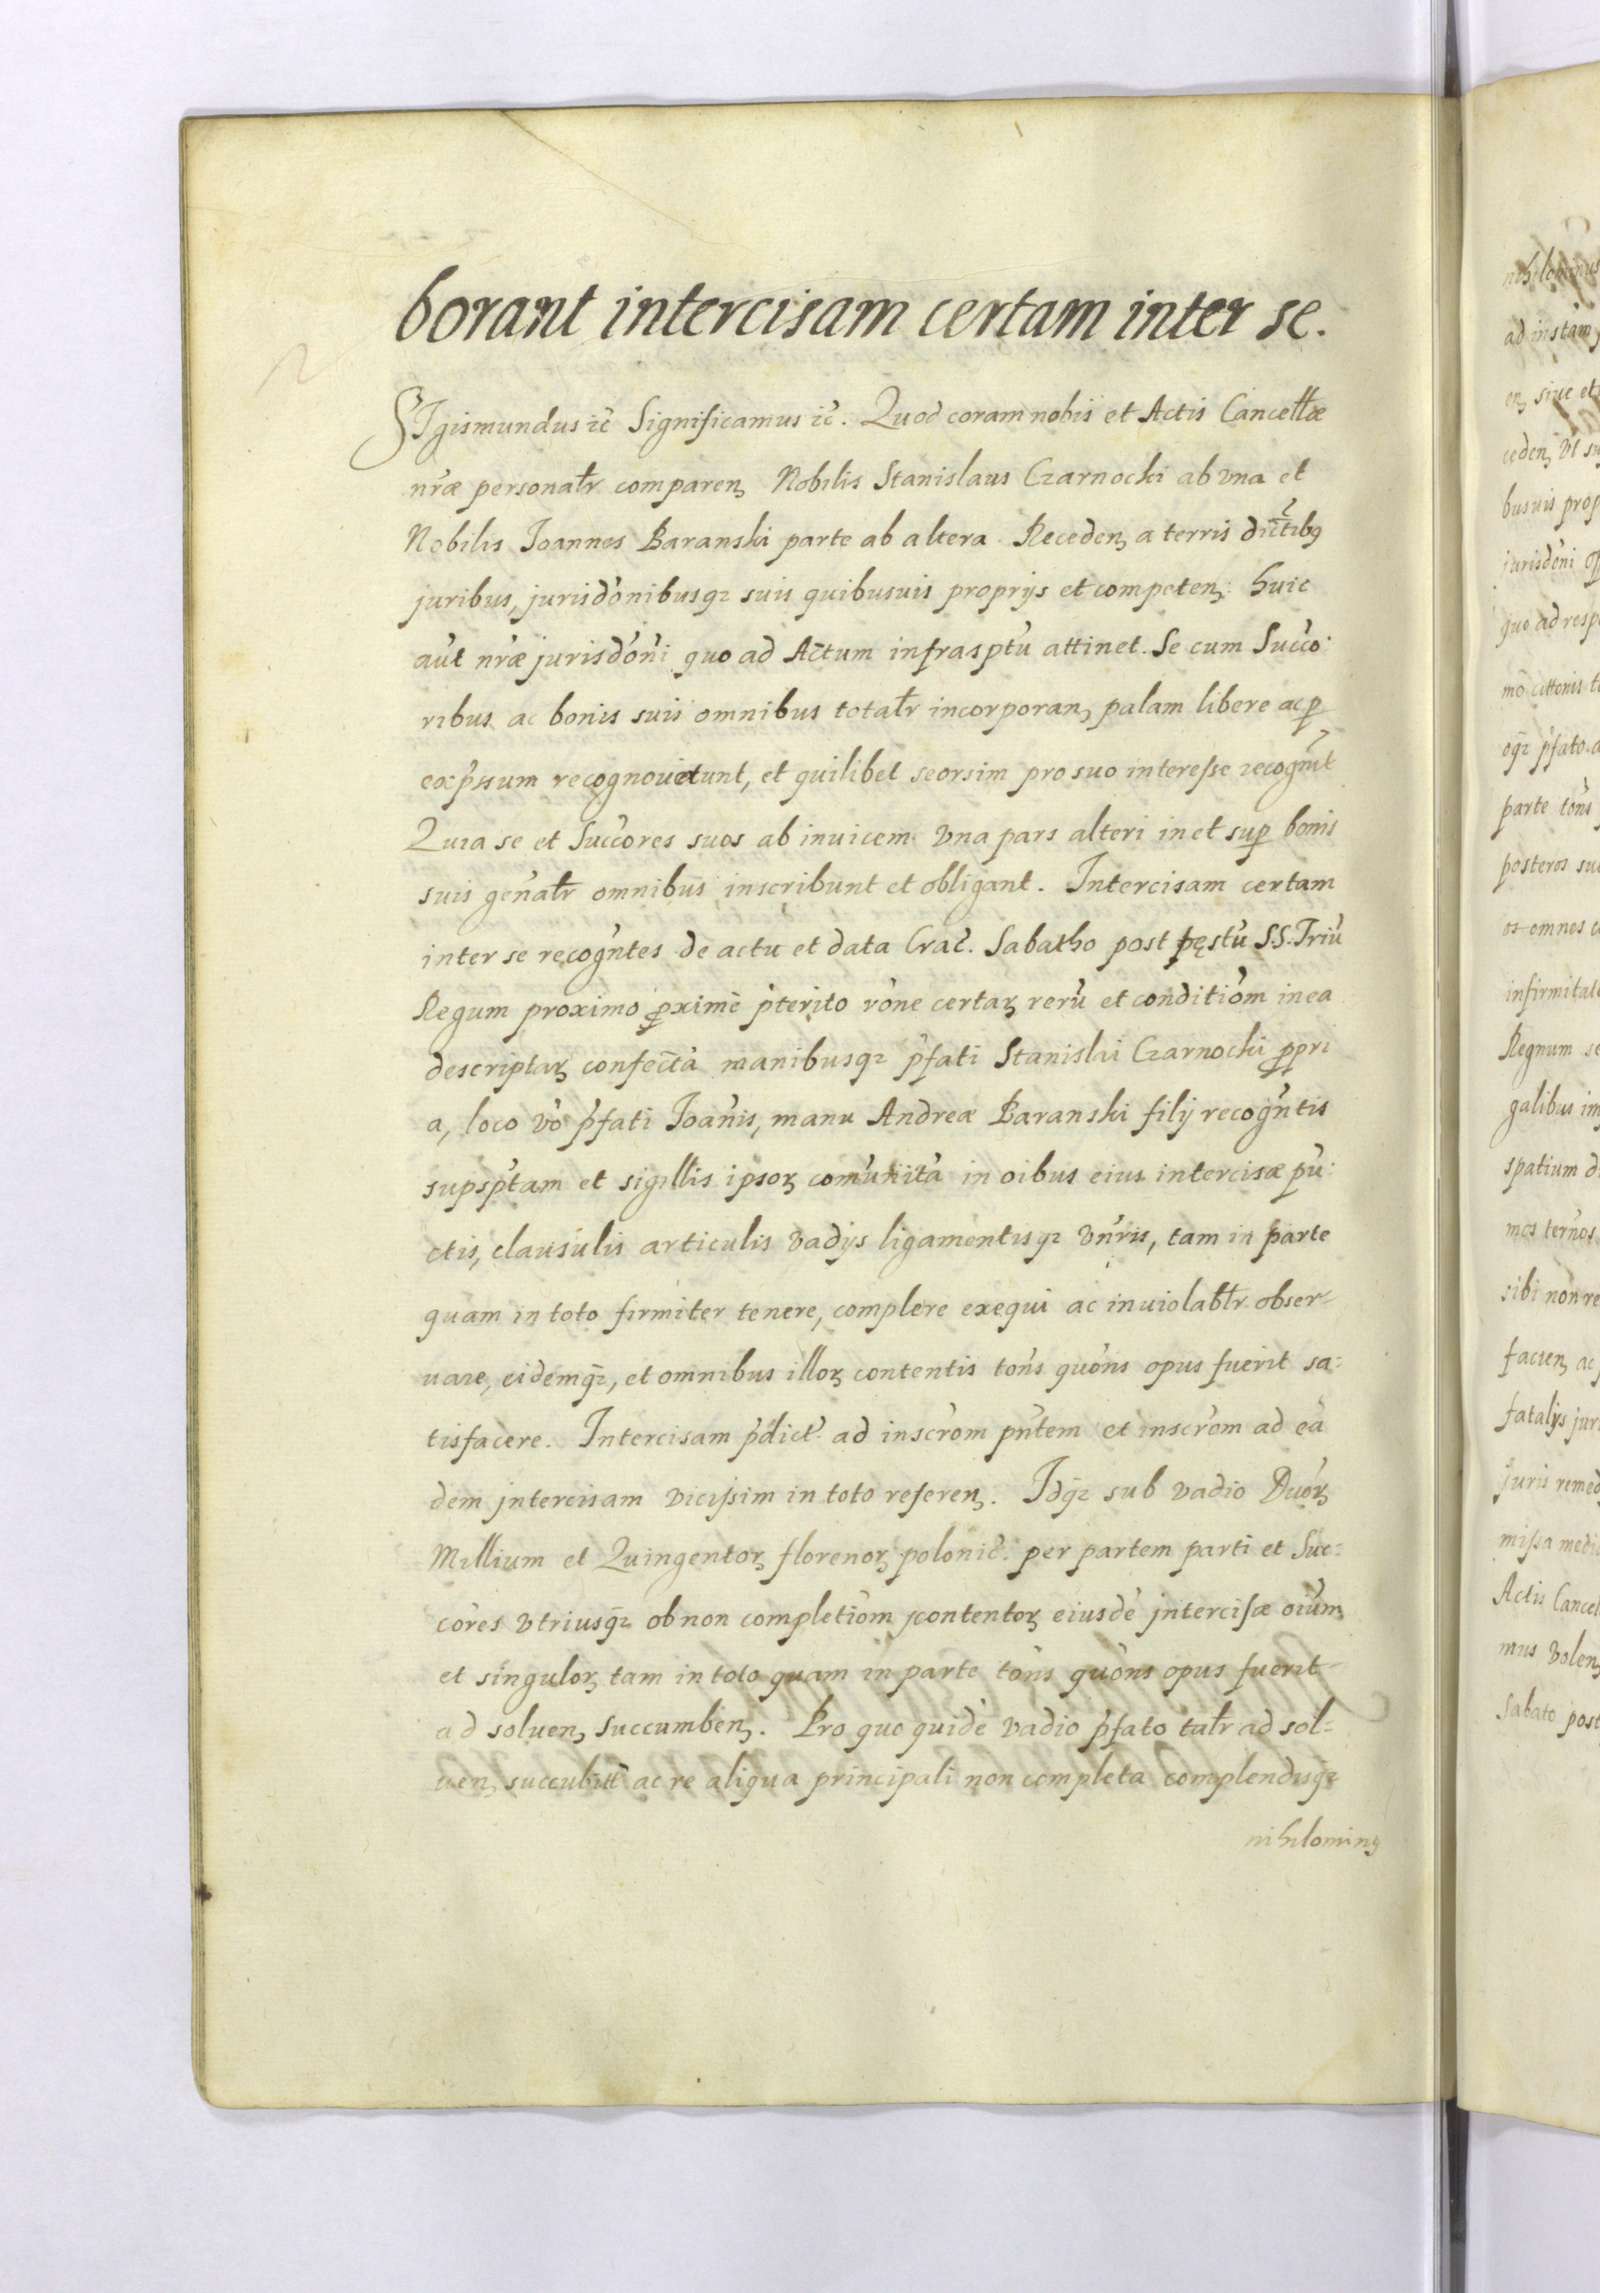 borant intercisam certam inter se.
SIgismundus ic̃ Significamus ic̃. Quod coram nobis et Actis Cancellæ
nr̃æ personalr̃ comparenꝫ Nobilis Stanislaus Czarnocki ab vna et
Nobilis Joannes Baranski parte ab altera. Recedenꝫ a terris dict̃ibꝰ
juribus, jurisdõnibusqꝫ suis quibusuis proprijs et competenꝫ: huic
aũt nr̃æ jurisdõni quo ad Actum infrasptũ attinet. Se cum Succo:
ribus ac bonis suis omnibus totalr̃ incorporanꝫ palam libere ac ꝑ
exp̃ssum recognouerunt, et quilibet seorsim pro suo interesse recogñt
Quia se et Succõres suos ab inuicem vna pars alteri in et suꝑ bonis
suis geñalr̃ omnibus inscribunt et obligant. Intercisam certam
inter se recogñtes de actu et data Crac̃. Sabatho post fęstũ S.S. Triũ
Regum proximo ꝓxime p̃terito rõne certaꝝ rerũ et conditiõm in ea
descriptaꝝ confectã manibusqꝫ p̃fati Stanislai Czarnocki ꝓpri
a, loco võ p̃fati Joañis, manu Andreæ Baranski filij recogñtis
supsp̃tam et sigillis ipsoꝝ comũnitã in oibus eius intercisæ pũ:
ctis, clausulis articulis vadijs ligamentisqꝫ vñris, tam in parte
quam in toto firmiter tenere, complere exequi ac inuiolablr̃ obser-
uare, eidemqꝫ, et omnibus illoꝝ contentis tõns quõns opus fuerit sa:
tisfacere. Intercisam p̃dict̃ ad inscrõm pñtem et inscrõm ad eã
dem jntercisam vicissim in toto referenꝫ. Idqꝫ sub vadio Duoꝝ
Millium et Quingentoꝝ florenoꝝ polonic̃. per partem parti et Suc:
cõres vtriusqꝫ ob non completiõm contentoꝝ eiusdẽ jntercisæ oium
et singuloꝝ tam in toto quam in parte tõns quõns opus fuerit
ad soluenꝫ succumbenꝫ. Pro quo quidẽ vadio p̃fato talr̃ ad sol-
uenꝫ succubitt̃ ac re aliqua principali non completa complendisqꝫ
nihilominꝰ